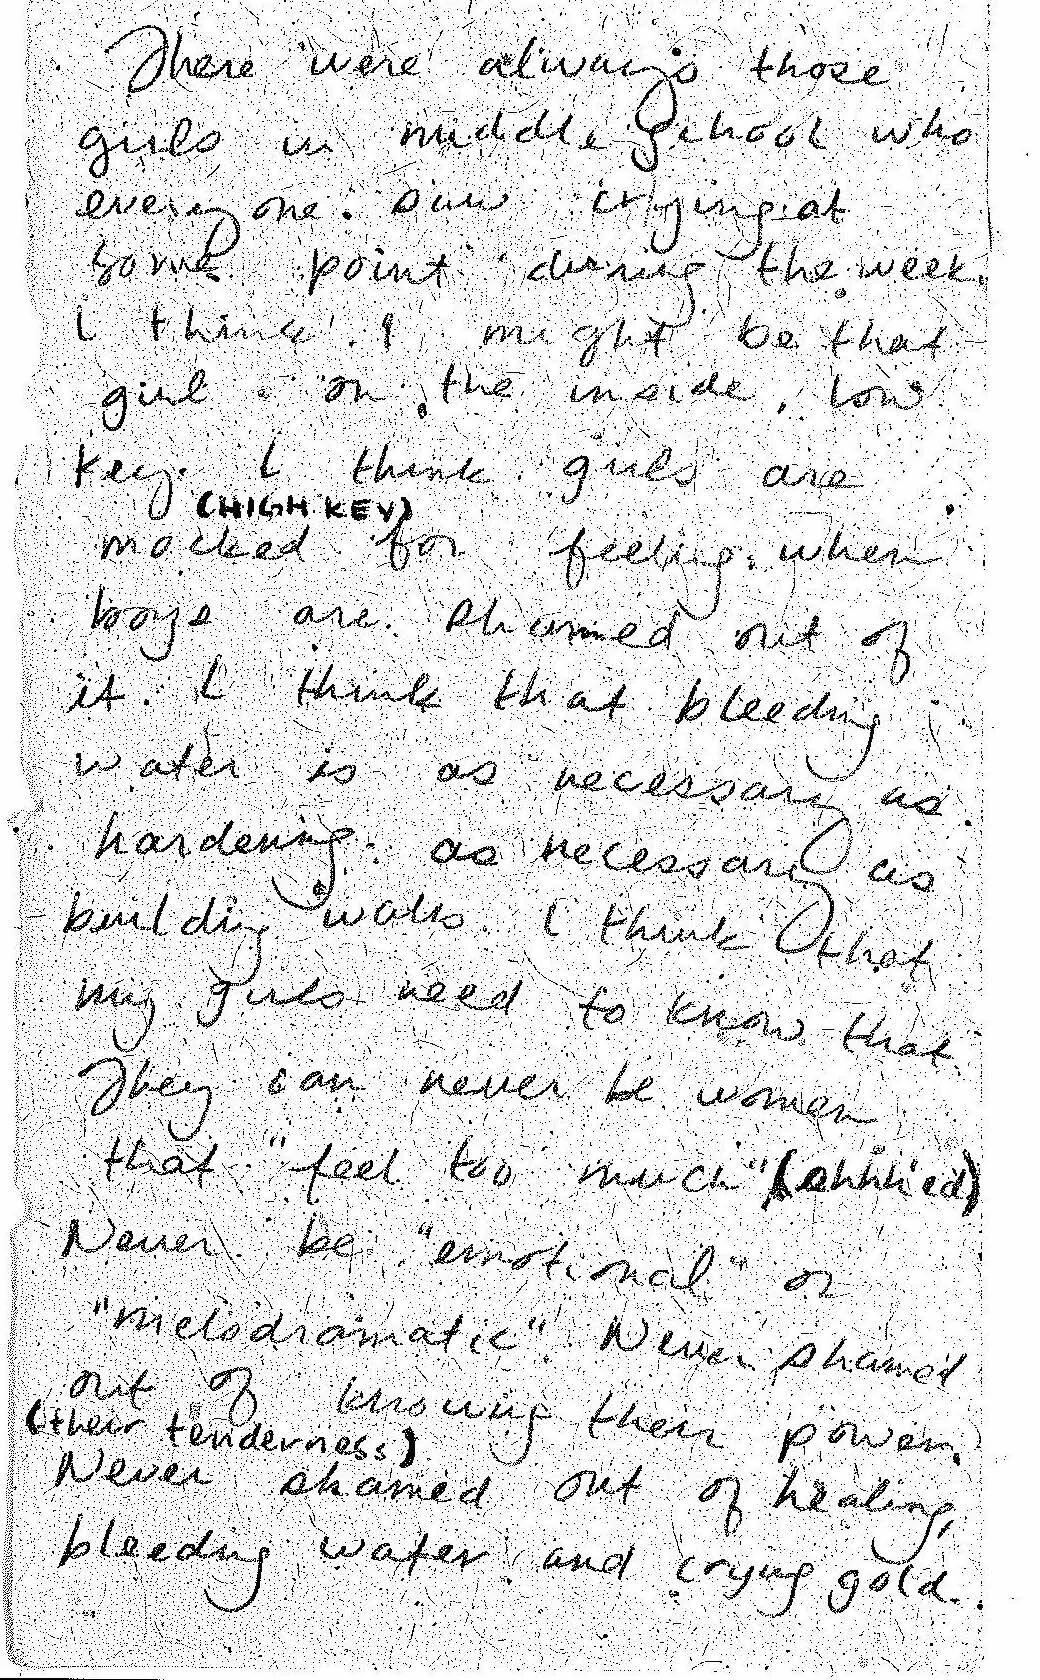 There were always those
girls in middle school who
everyone saw crying at
some point during the week.
I think I might be that
girl on the inside, low
key. I think girls are
(HIGH KEY)
mocked for feeling when
boys are shamed out of
it. I think that bleeding
water is as necessary as
hardening. as necessary as
building walls. I think that
my girls need to know that
They can never be women
that "feel too much"
Never be "emotional" or
"melodramatic". Never shamed
out of knowing their power.
(their tenderness)
Never shamed out of healing,
bleeding water and crying gold.